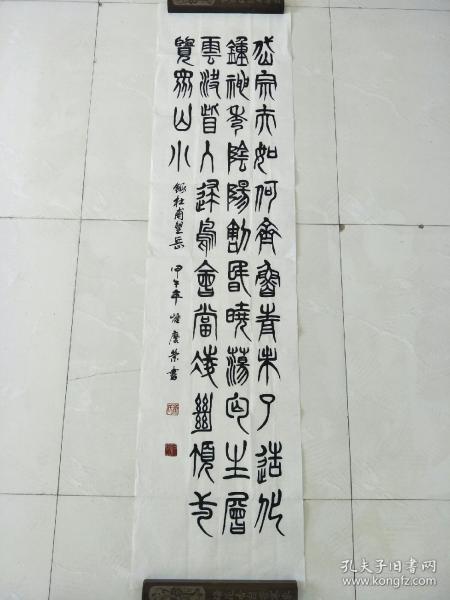 岱宗夫如何齊魯青未了造化
鍾神秀陰陽割昏曉蕩胸生層
雲決眥入歸鳥會當凌絕頂
覽眾山小 錄杜甫望岳 甲午年 慶榮書
孔夫子旧书网
www.kongfz.com